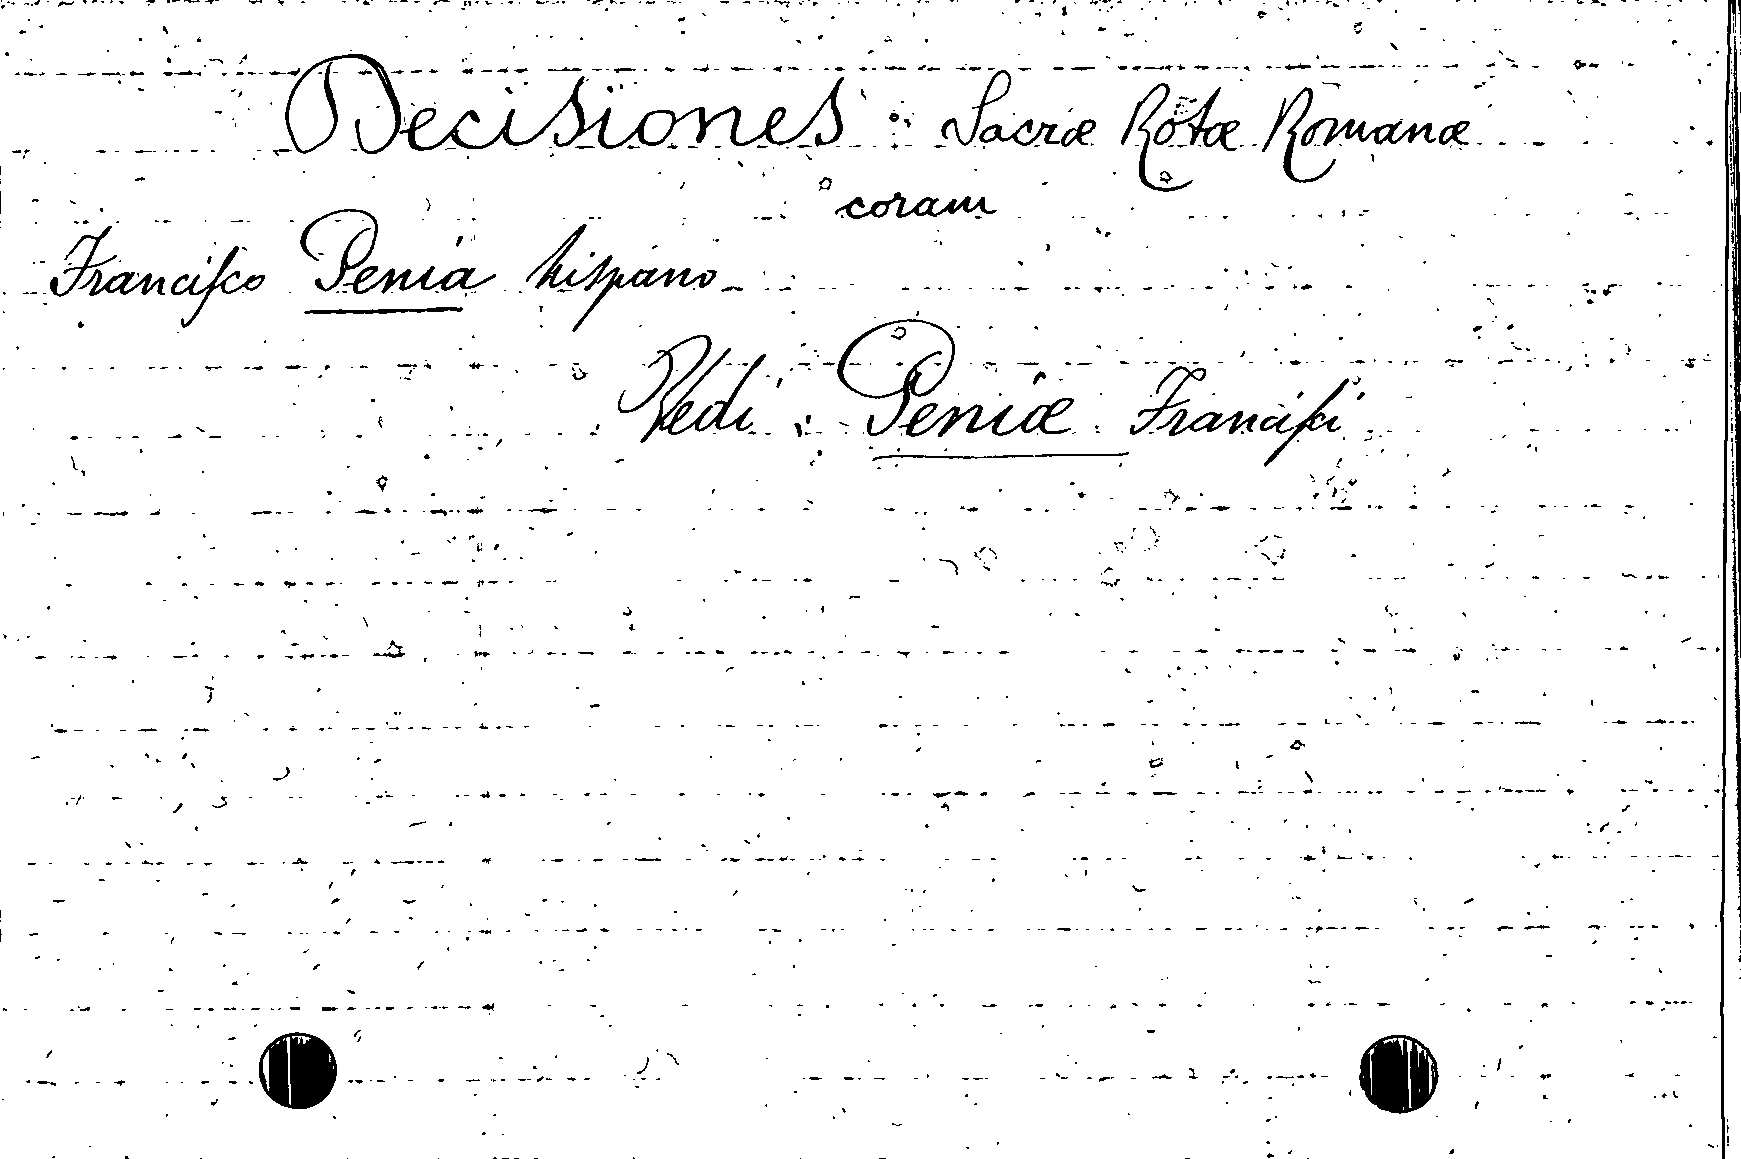 Decisiones : Sacræ Rotæ Romanæ
coram
Franciſco Penia hispano
Vedi : Peniæ Franciſci